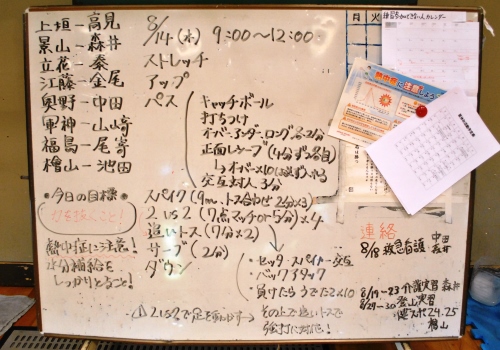 上垣ー高見
景山ー森井
立花ー泰
江藤ー金尾
奥野ー中田
軍神ー山崎
福島ー尾嵜
檜山ー池田
◎今日の目標◎
力を抜くこと！
熱中症に注意！
水分補給を
しっかりとること！
8/14(水) 9:00〜12:00
ストレッチ
アップ
パス
キャッチボール
打ちつけ
オーバー、アンダー、ロング各2分
正面レシーブ(4分ずつ各自)
交互対人 3分
スパイク(9m、トス合わせ 2分×3)
2 vs 2 (7点マッチor5分)×4
追いトス(7分×2)
サーブ(2分)
ダウン
・セッタースパイカー交互
・バックアタック
・負けたらうでたて×10
その上で速いトスで
強打に対応！
月 火
練習参加できない人カレンダー
熱中症に注意しよう
連絡
8/18 救急看護 中田
森井
8/19〜23 介護実習 森井
8/29〜30 登山実習
24.25
檜山